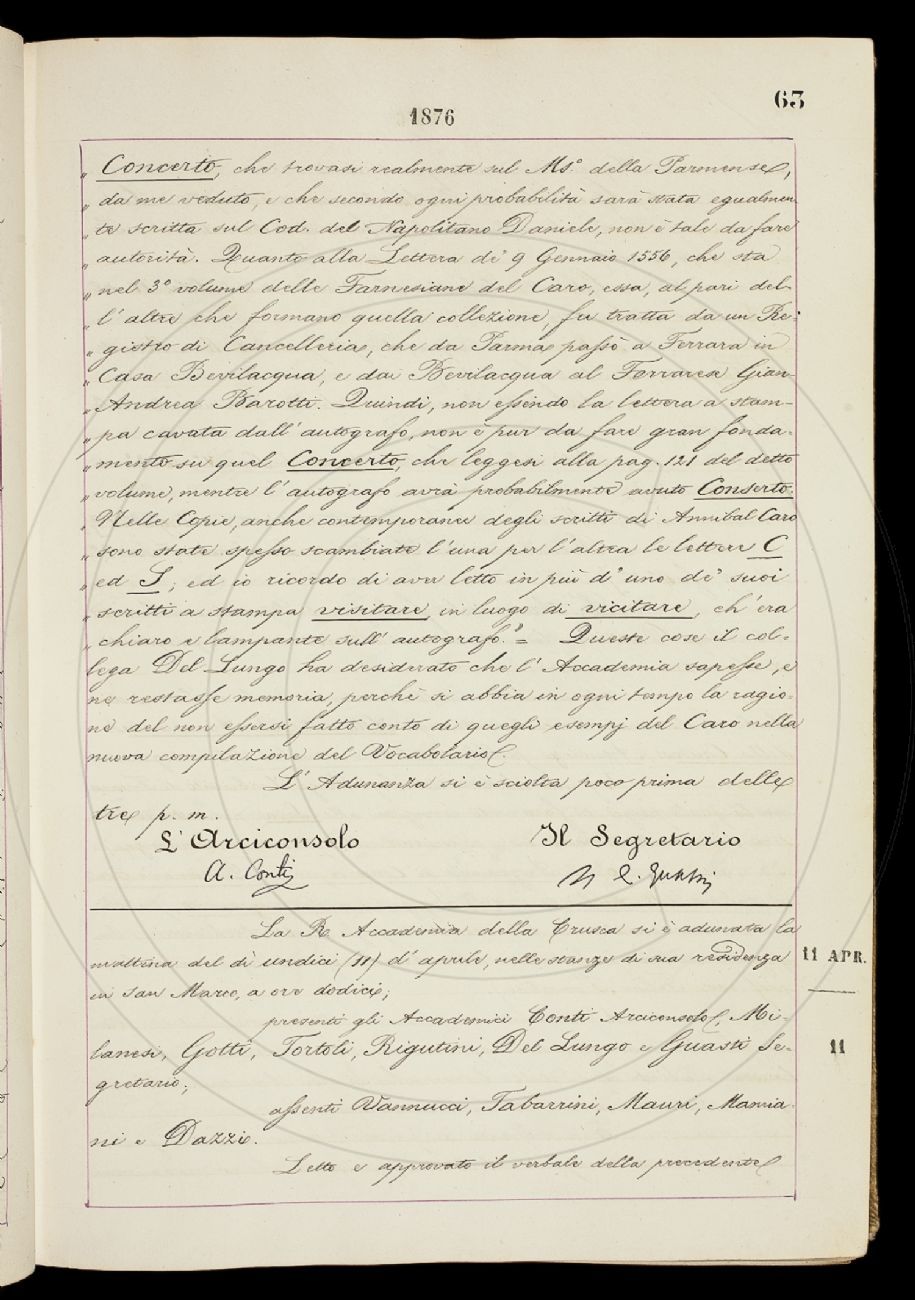 63
1876
„ Concerto, che trovasi realmente sul Ms.° della Parmense,
„ da me veduto, e che secondo ogni probabilità sarà stata egualmen
„ te scritta sul Cod. del Napolitano Daniele, non è tale da fare
„ autorità. Quanto alla Lettera de' 9 Gennaio 1556, che sta
„ nel 3° volume delle Farnesiane del Caro, essa, al pari del-
„ l'altre che formano quella collezione, fu tratta da un Re-
„ gistro di Cancelleria, che da Parma passò a Ferrara in
„ Casa Bevilacqua, e dai Bevilacqua al Ferrarese Gian-
„ Andrea Barotti. Quindi, non essendo la lettera a stam-
„ pa cavata dall'autografo, non è pur da fare gran fonda-
„ mento su quel Concerto, che leggesi alla pag. 121 del detto
„ volume, mentre l'autografo avrà probabilmente avuto Conserto.
„ Nelle Copie, anche contemporanee degli scritti di Annibal Caro
„ sono state spesso scambiate l'una per l'altra le lettere C
„ ed S; ed io ricordo di aver letto in più d'uno de' suoi
„ scritti a stampa visitare, in luogo di vicitare, ch'era
„ chiaro e lampante sull'autografo." = Queste cose il col-
lega Del Lungo ha desiderato che l'Accademia sapesse, e
ne restasse memoria, perchè si abbia in ogni tempo la ragio-
ne del non essersi fatto conto di quegli esempj del Caro nella
nuova compilazione del Vocabolario.
L'Adunanza si è sciolta poco prima delle
tre p. m.
L'Arciconsolo
Il Segretario
A. Conti
C. Guasti
La R. Accademia della Crusca si è adunata la
mattina del dì undici (11) d'aprile, nelle stanze di sua residenza
in San Marco, a ore dodici;
11 APR.
presenti gli Accademici Conti Arciconsolo, Mi-
lanesi, Gotti, Tortoli, Rigutini, Del Lungo e Guasti Se-
gretario;
11
assenti Vannucci, Tabarrini, Mauri, Mamia-
ni e Dazzi.
Letto e approvato il verbale della precedente